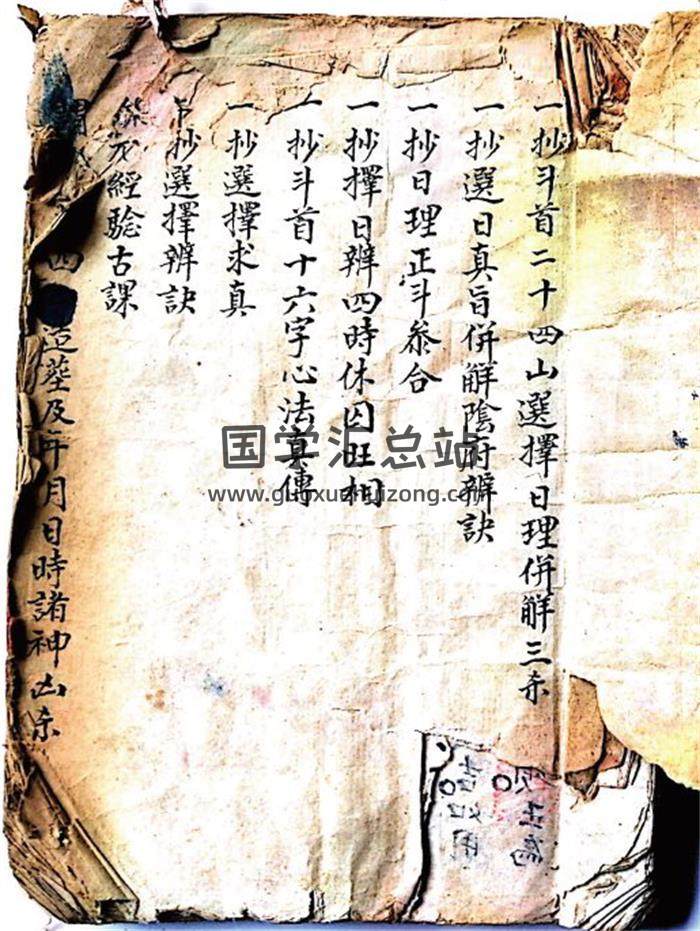 一抄斗首二十四山選擇日理併解三杀
一抄選日真旨併解陰府辨訣
一抄日理正斗叅合
一抄擇日辨四時休囚旺相
一抄斗首十六字心法真傳
一抄選擇求真
抄選擇辨訣
經驗古課
四 造塟及年月日時諸神凶杀
国学汇总站
www.guoxuehuizong.com